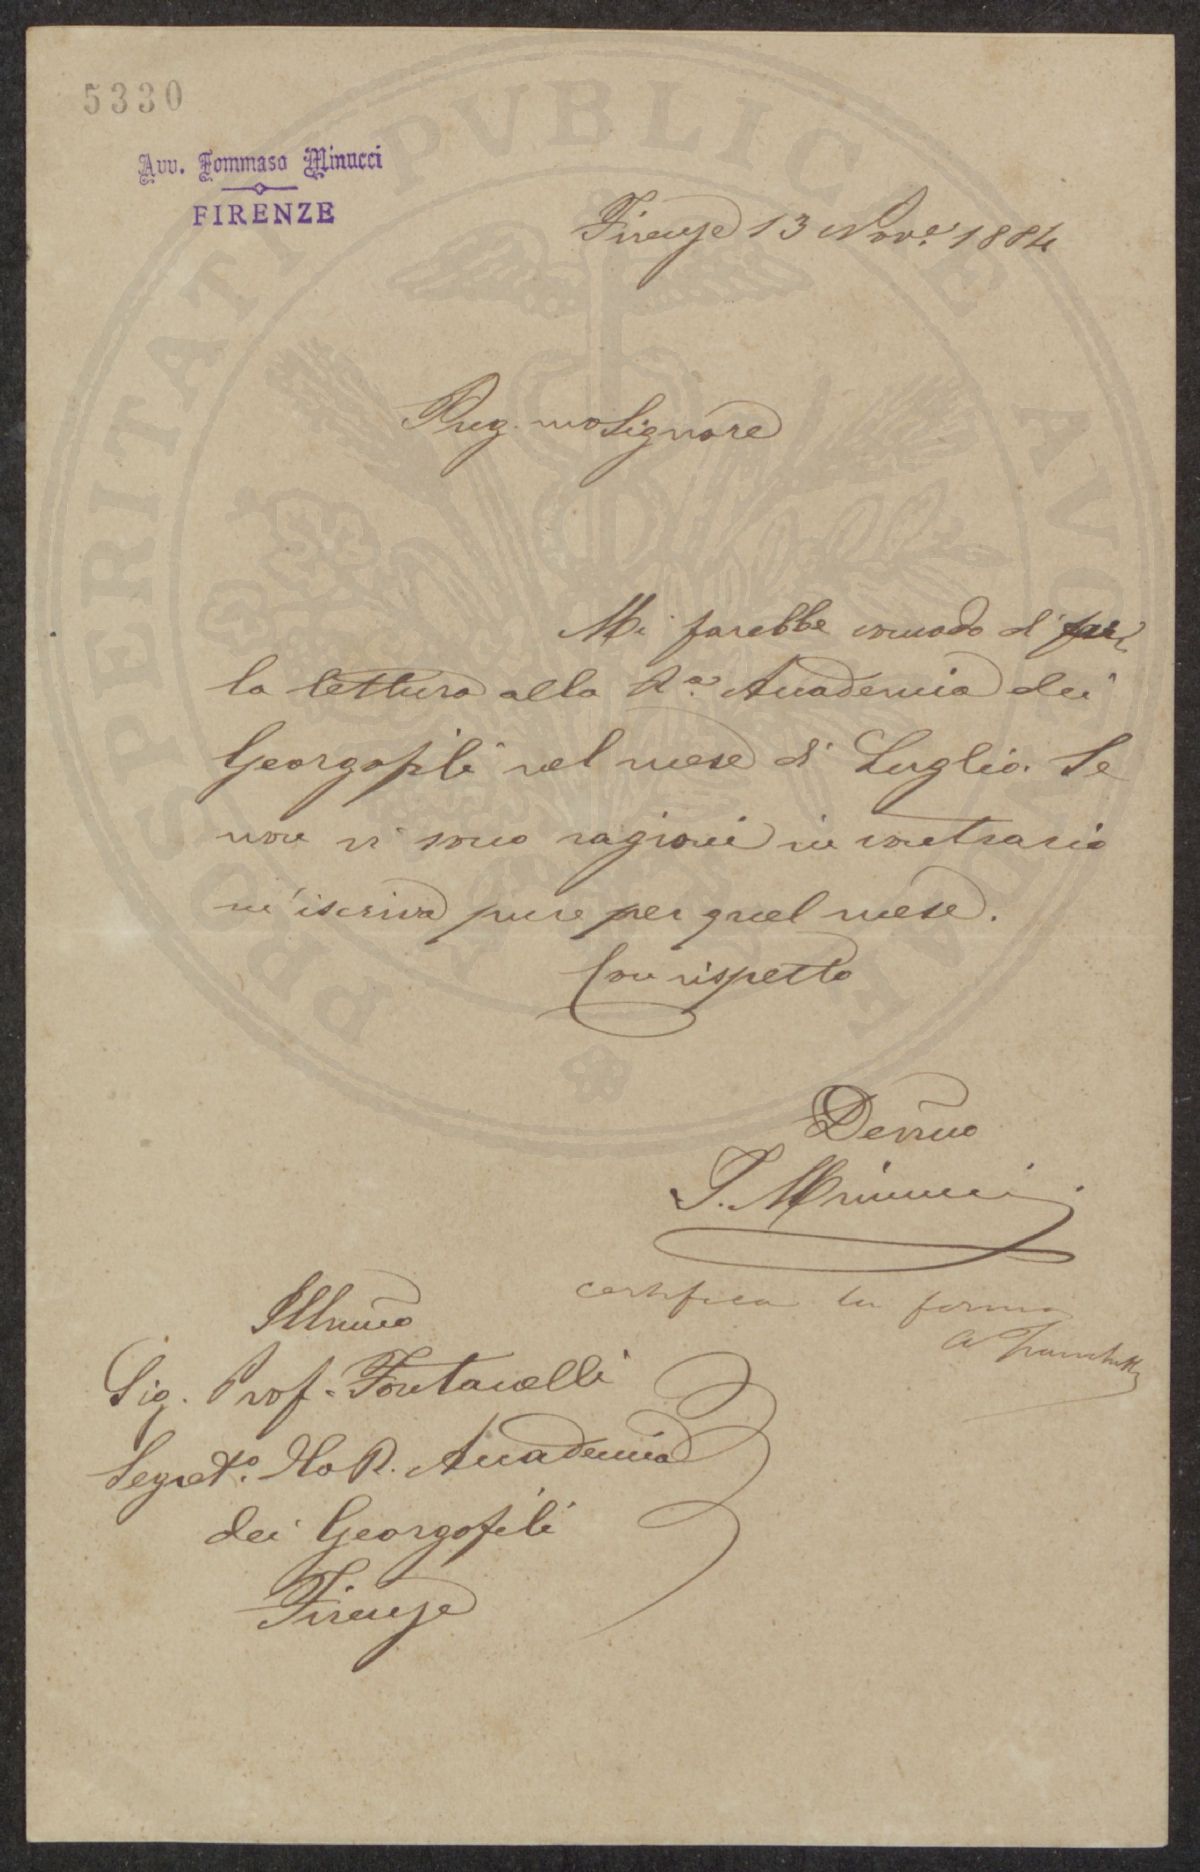 5330
Avv. Tommaso Minucci
FIRENZE
Firenze 13 Nov.e 1884
Preg.mo Signore
Mi farebbe comodo di far
la lettura alla R.a Accademia dei
Georgofili nel mese di Luglio. Se
non vi sono ragioni in contrario
m'iscriva pure per quel mese.
Con rispetto
Devmo
T. Minucci
certifica la firma
Illmo
Sig. Prof. Fontanelli
Segret.o della R. Accademia
dei Georgofili
Firenze
PROSPERITATI PVBLICAE AVGENDAE